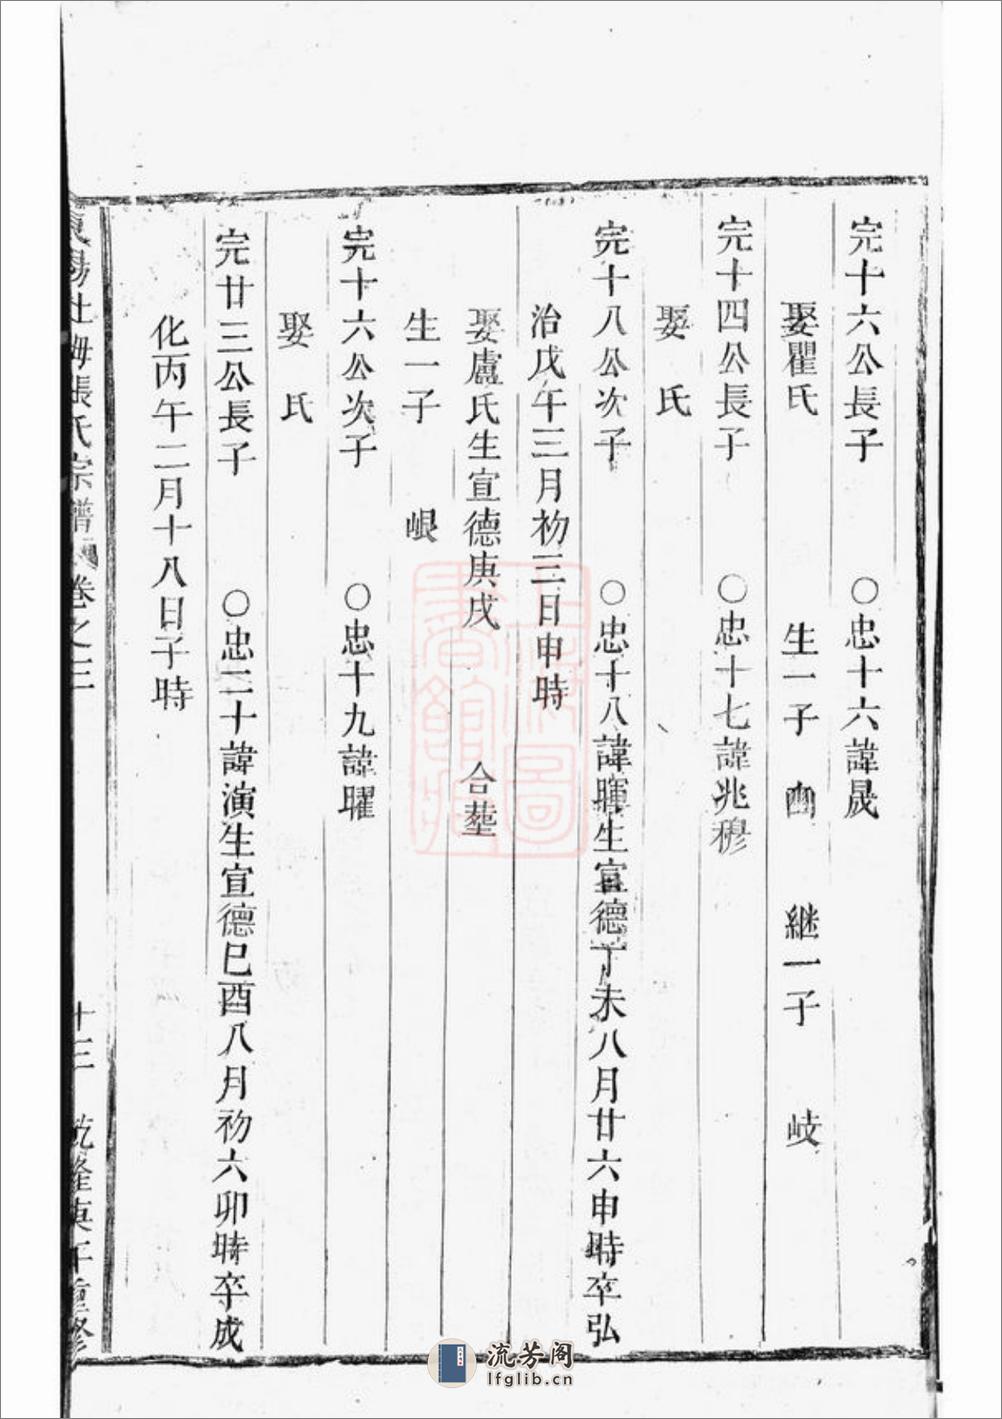 完十六公長子　○忠十六諱晟
娶瞿氏　生一子　凾　継一子　岐
完十四公長子　○忠十七諱兆穆
娶　氏
完十八公次子　○忠十八諱暉生宣德丁未八月廿六申時卒弘
治戊午三月初三日申時
娶盧氏生宣德庚戌　合塟
生一子　峴
完十六公次子　○忠十九諱曜
娶　氏
完廿三公長子　○忠二十諱演生宣德巳酉八月初六卯時卒成
化丙午二月十八日子時
張氏宗譜　卷之三　十三　乾隆庚午重修
上海圖書館藏
流芳阁
lfglib.cn